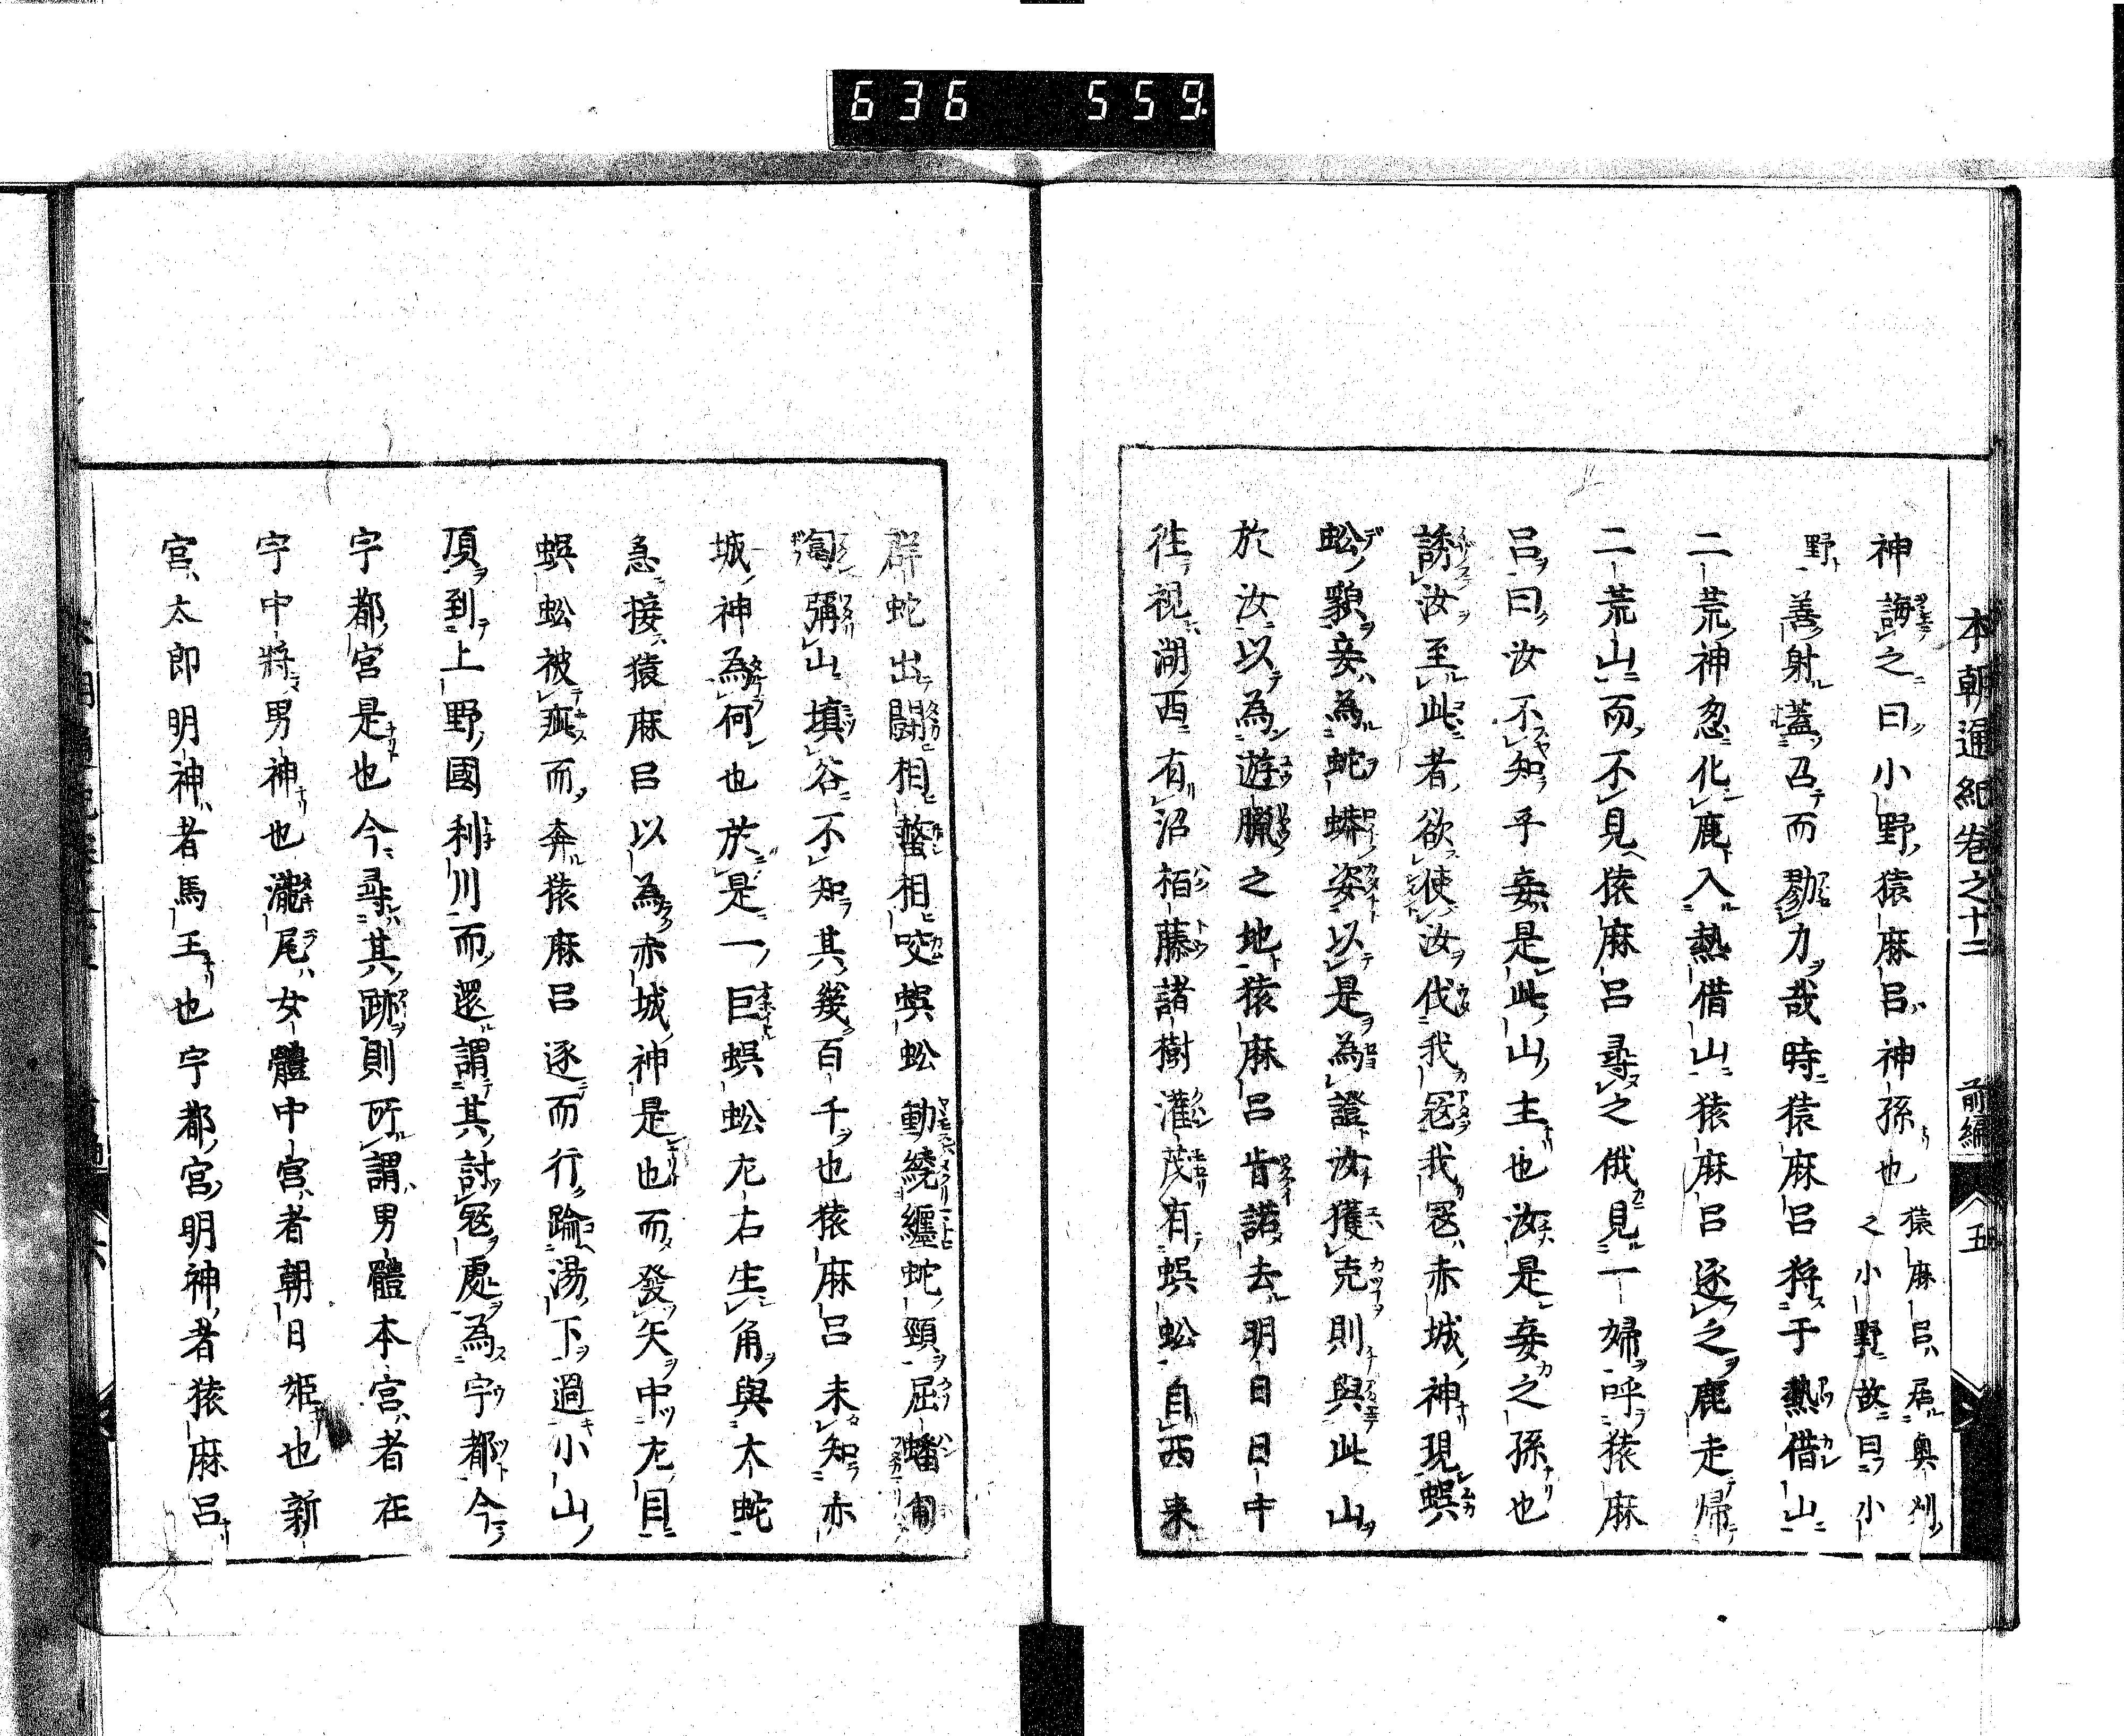 636 559
本朝通紀卷之十二 前編 五
神誨之曰小野猿麻呂神孫也猿麻呂居奥刕之小野故曰小
野善射蓋召而勠力哉時猿麻呂狩于熱借山
二荒神忽化鹿入熱借山猿麻呂逐之鹿走帰
二荒山而不見猿麻呂尋之俄見一婦呼猿麻
呂曰汝不知乎妾是此山主也汝是妾之孫也
誘汝至此者欲使汝代我冦我冦赤城神現蜈
蚣貌妾為蛇蟒姿以是為證汝獲克則與此山
於汝以為遊臘之地猿麻呂肯諾去明日日中
徃視湖西有沼栢藤諸樹灌茂有蜈蚣自西来
群蛇出闘相螫相咬蜈蚣動繞纏蛇頸屈蟠匍
匐彌山填谷不知其幾百千也猿麻呂未知赤
城神為何也於是一巨蜈蚣左右生角與大蛇
急接猿麻呂以為赤城神是也而發矢中左目
蜈蚣被疵而奔猿麻呂逐而行踰湯下過小山
頂到上野國利川而還謂其討冦處為宇都今
宇都宮是也今尋其跡則所謂男體本宮者在
宇中將男神也瀧尾女體中宮者朝日姫也新
宮太郎明神者馬王也宇都宮明神者猿麻呂